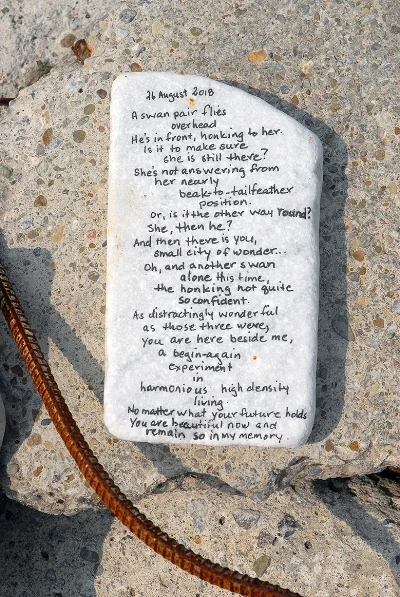 26 August 2018
A swan pair flies
overhead
He's in front, honking to her.
Is it to make sure
she is still there?
She's not answering from
her nearly
beak-to-tailfeather
position.
Or, is it the other way round?
She, then he?
And then there is you,
small city of wonder...
Oh, and another swan
alone this time,
the honking not quite
so confident.
As distractingly wonderful
as those three were,
you are here beside me,
a begin-again
experiment
in
harmonious high density
living.
No matter what your future holds
You are beautiful now and
remain so in my memory.